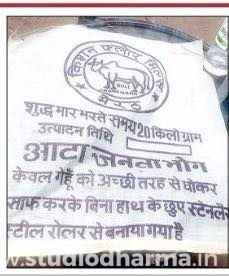 किसान फ्लोर मिल्स
मेरठ
शुद्ध भार भरते समय 20 किलो ग्राम
उत्पादन तिथि
आटा जनता भोग
केवल गेहूँ को अच्छी तरह से धोकर
साफ करके बिना हाथ के छुए स्टेनलेस
स्टील रोलर से बनाया गया है
www.studiodharma.in